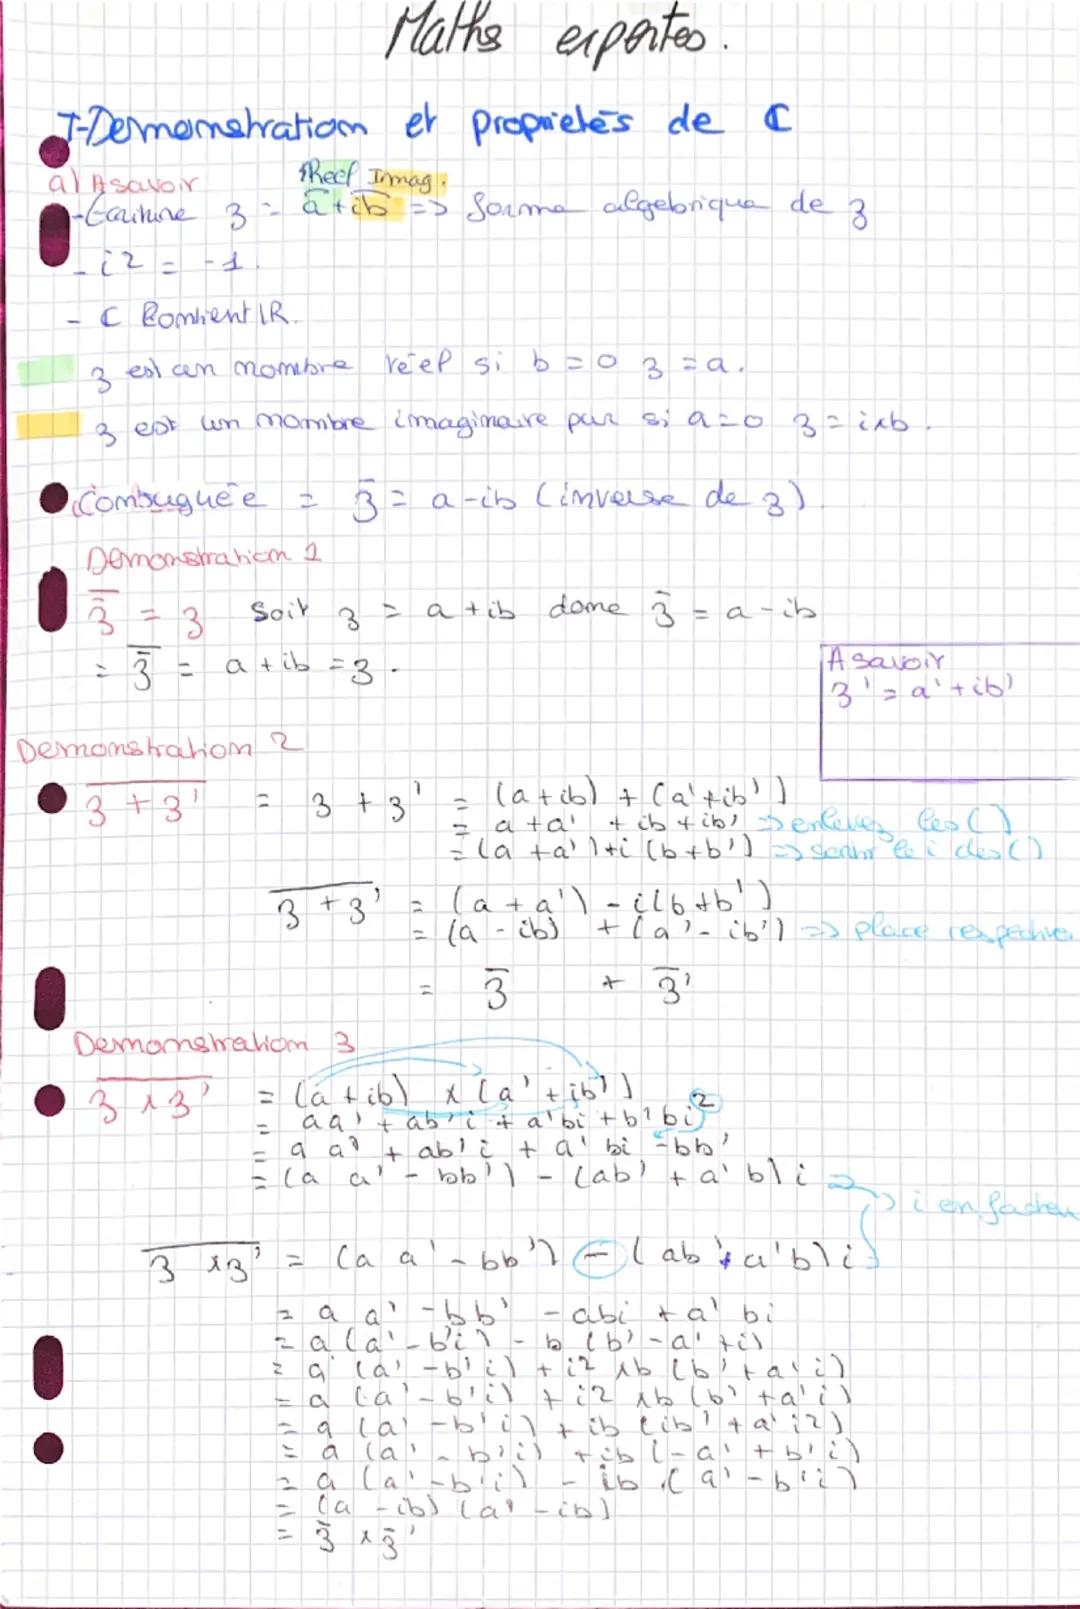 Maths expertes.
I-Demonstration et proprietés de C
a) A savoir
Reel Imag.
-Ecriture z = a+ib => forme algebrique de z
- i2 = -1.
- C Contient IR.
z est un nombre réel si b=0 z=a.
z est un nombre imaginaire pur si a=0 z=ixb.
Conjuguée = z̄ = a-ib (inverse de z)
Demonstration 1
z̿ = z Soit z = a+ib donc z̄ = a-ib
= z̿ = a+ib = z.
A savoir
z' = a'+ib'
Demonstration 2
\overline{z+z'} = z+z' = (a+ib) + (a'+ib')
= a+a' + ib+ib' => enlever les ()
= (a+a')+i(b+b') => sortir le i des ()
\overline{z+z'} = (a+a') - i(b+b')
= (a-ib) + (a'-ib') => place respective
= z̄ + z̄'
Demonstration 3
\overline{z x z'} = (a+ib) x (a'+ib')
= aa' + ab'i + a'bi + b'bi²
= aa' + ab'i + a'bi -bb'
= (aa' - bb') - (ab' + a'b)i =>
i en facteur
\overline{z x z'} = (aa' - bb') - (ab' + a'b)i
= aa' - bb' - abi + a'bi
= a(a'-b'i) - b(b'-a'+i)
= a(a'-b'i) + i2 xb (b'+a'i)
= a(a'-b'i) + i2 xb (b'+a'i)
= a(a'-b'i) + ib (ib'+a'i2)
= a(a'-b'i) + ib (-a'+b'i)
= a(a'-b'i) - ib.(a'-b'i)
= (a-ib) (a'-ib)
= z̄ x z̄'